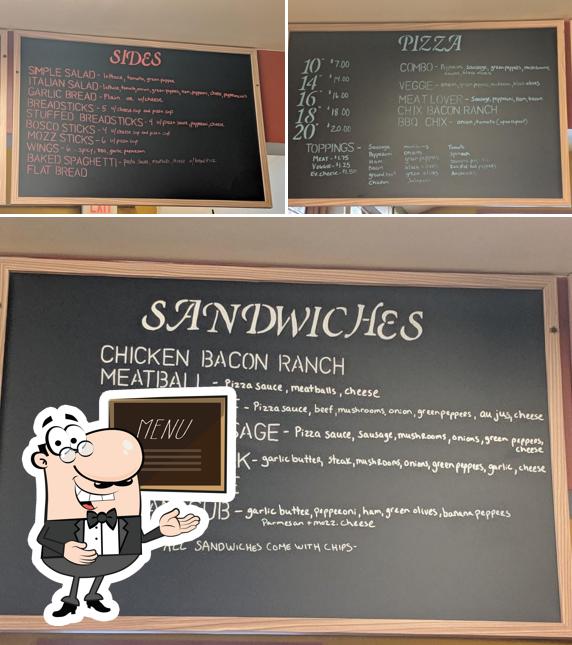 SIDES
SIMPLE SALAD - lettuce, tomato, green pepper
ITALIAN SALAD - lettuce, tomato, onion, green peppers, ham, pepperoni, cheese, pepperoncini
GARLIC BREAD - Plain or w/cheese
BREADSTICKS - 5 w/cheese cup and pizza cup
STUFFED BREADSTICKS - 4 w/pizza sauce, pepperoni, cheese
BOSCO STICKS - 4 w/cheese cup and pizza cup
MOZZ STICKS - 6 w/pizza cup
WINGS - 6 - spicy, bbq, garlic parmesan
BAKED SPAGHETTI - pasta sauce, meatballs, cheese w/breadstick
FLAT BREAD
EXIT
PIZZA
10" $7.00
14" $14.00
16" $16.00
18" $18.00
20" $20.00
COMBO - Pepperoni, Sausage, green peppers, mushrooms,
onions, black olives
VEGGIE - onion, green peppers, mushrooms, black olives
MEAT LOVER - Sausage, pepperoni, ham, bacon
CHIX BACON RANCH
BBQ CHIX - onion, tomato (upon request)
TOPPINGS - Sausage mushrooms Tomato
MEAT - $1.75 Pepperoni onions Spinach
VEGGIE - $1.25 Ham green peppers
Ex. cheese - $1.50 Bacon black olives
ground beef green olives Anchovies
Chicken Jalapenos
SANDWICHES
CHICKEN BACON RANCH
MEATBALL - Pizza sauce, meatballs, cheese
- Pizza sauce, beef, mushrooms, onion, green peppers, au jus, cheese
SAGE - Pizza sauce, sausage, mushrooms, onions, green peppers,
cheese
K - garlic butter, steak, mushrooms, onions, green peppers, garlic, cheese
MENU
SUB - garlic butter, pepperoni, ham, green olives, banana peppers
Parmesan + mozz. cheese
ALL SANDWICHES COME WITH CHIPS-